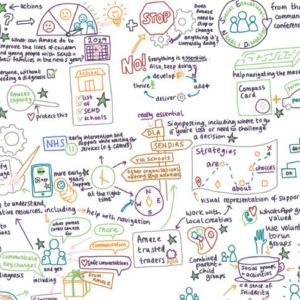 - actions
What can Amaze do to
improve the lives of children
and young people with SEND +
their families in the next 5 years?
2029
everyone, without
needing a diagnosis
Amaze's
capacity
protect this
School
list
of
SEND
schools
STOP
Does
Amaze
need to
stop or
change
anything it's
currently doing?
NO!
Everything is essential
Also, keep doing
thrive
deliver
develop
adapt
really essential
DLA
SENDIAS
Via Schools
other organisations
offering SEND support
from the
community
conference
helping navigate the maze
Compass
Card
Signposting, including where to go
if you're lost or need to challenge
a decision
Strategies
are
choices
about
NHS
early intervention and
support while waiting
for services (e.g. CAMHS)
more early
years
support
at the
right
time
N
E
S
W
to understand,
resources, including
help with navigation
visual representation of support
what parent
carers can ask
for
more
Communication
safe conversations
Communicate
key changes
and get
diagnosis
including
Amaze
trusted
traders
Work with
local creatives
WhatsApp
Use volunteers
to run
groups
Combined
parent +
child
groups
Social groups +
activities
a sense of
solidarity